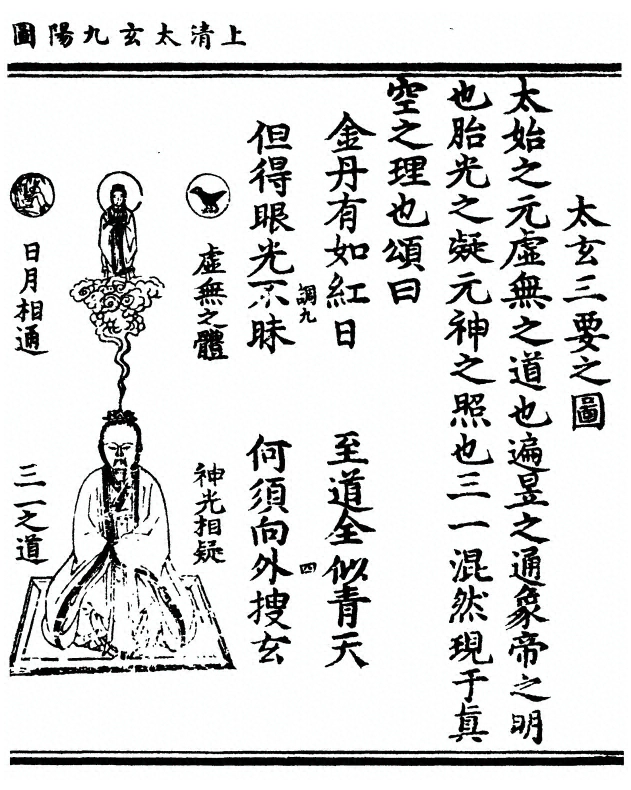 上清太玄九陽圖
太玄三要之圖
太始之元虛無之道也遍昱之通象帝之明
也胎光之凝元神之照也三一混然現于眞
空之理也頌曰
金丹有如紅日 至道全似青天
調九 四
但得眼光不昧 何須向外搜玄
虛無之體
神光相疑
日月相通
三一之道